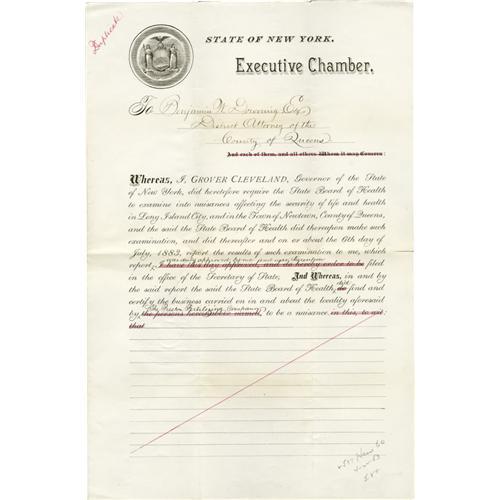 Duplicate
STATE OF NEW YORK.
Executive Chamber,
To Benjamin W. Downing Esq
District Attorney of the
County of Queens
And each of them, and all others Whom it may Concern:
Whereas, I, GROVER CLEVELAND, Governor of the State
of New York, did heretofore require the State Board of Health
to examine into nuisances affecting the security of life and health
in Long Island City, and in the Town of Newtown, County of Queens,
and the said the State Board of Health did thereupon make such
examination, and did thereafter and on or about the 6th day of
July, 1883, report the results of such examination to me, which
was duly approved by me and was thereupon
report, I have this day approved, and do hereby order to be filed
in the office of the Secretary of State; And Whereas, in and by
did
the said report the said the State Board of Health, do find and
certify the business carried on in and about the locality aforesaid
The Preston Fertilizing Company
by the persons hereinbefore named, to be a nuisance in this, to wit:
that